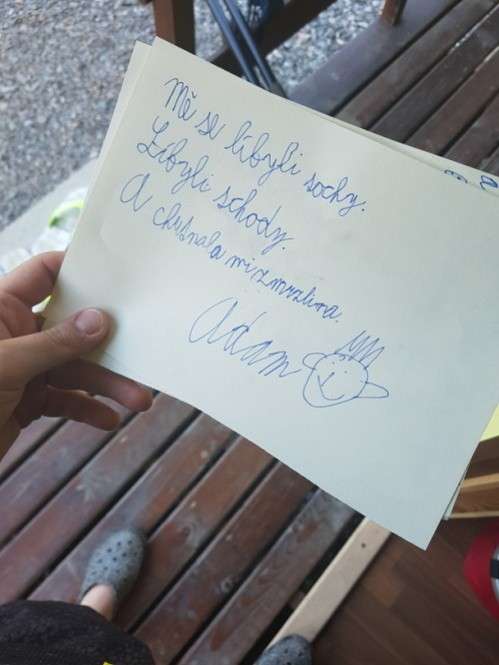 Mě se líbyli sochy.
Líbyli schody.
A chusnala mi zmrzlina.
Adam